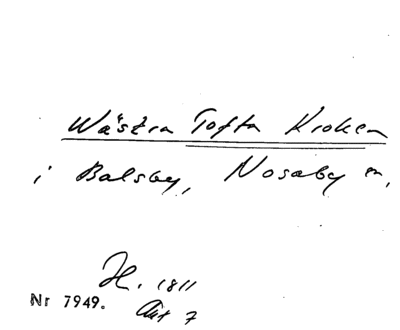 Wästra Tofta Kroken
i Balsby, Nosaby sn,
H. 1811
Nr 7949. Akt 7